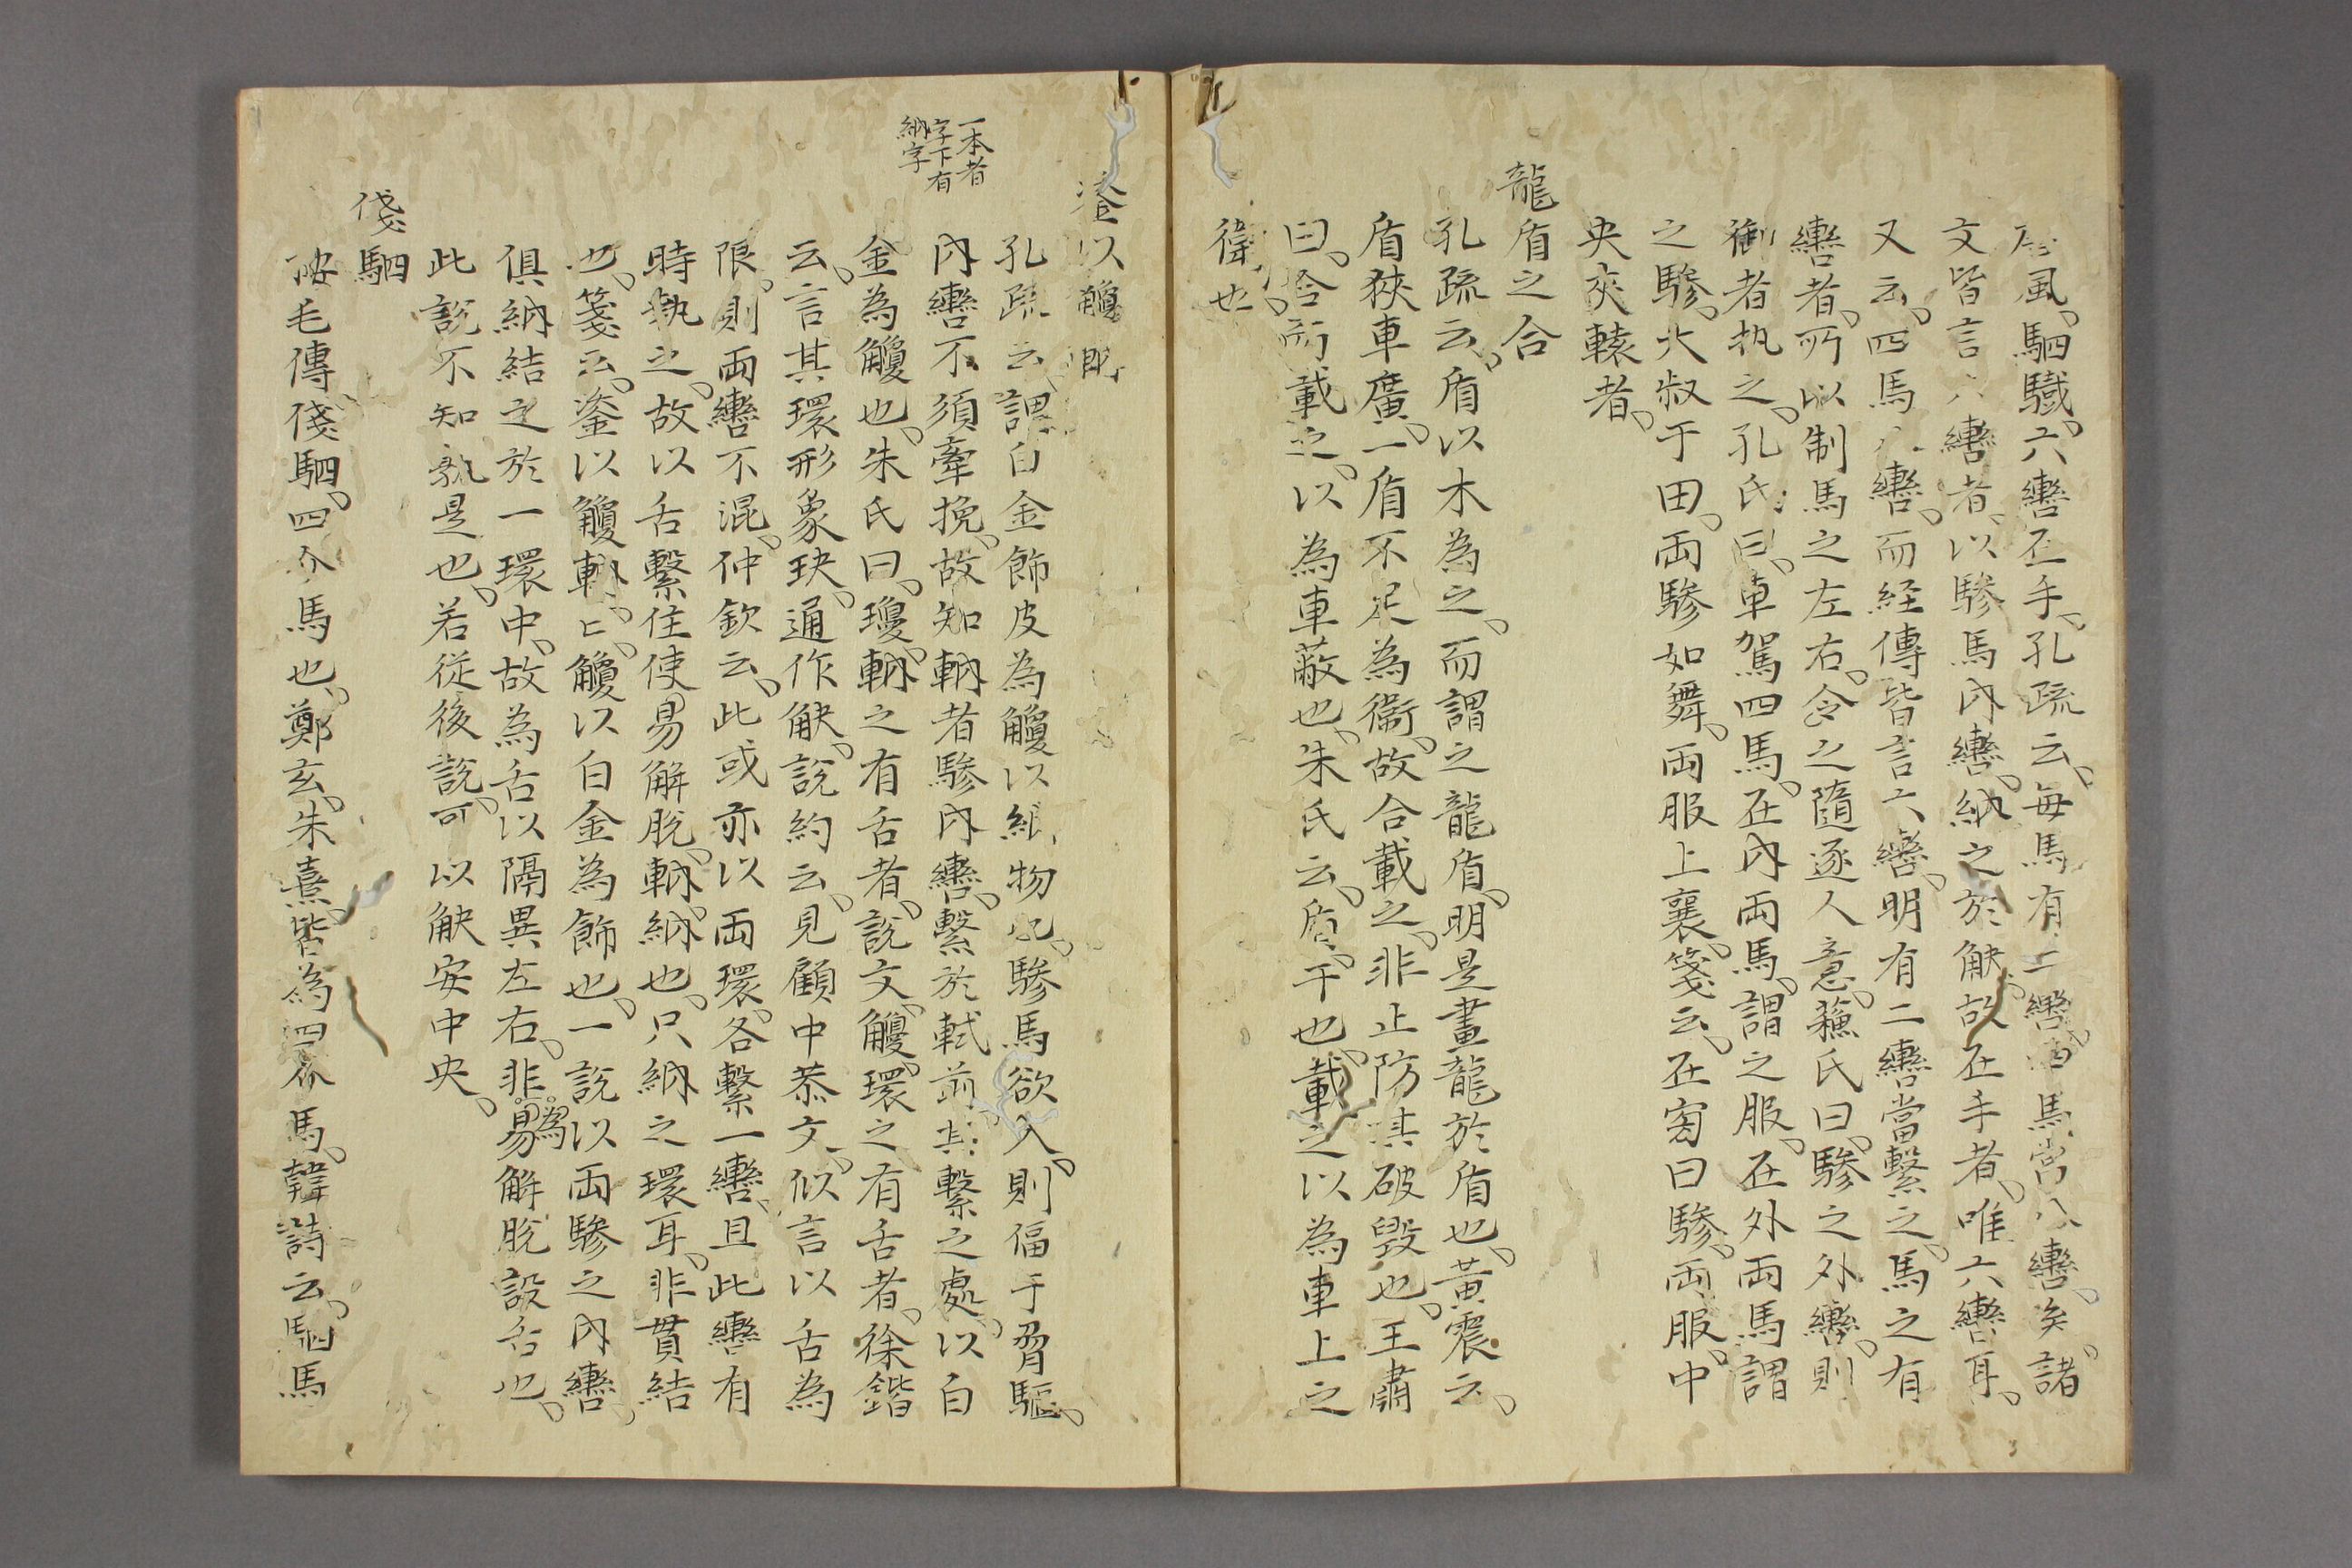 風、駟驖、六轡在手、孔疏云、毎馬有二轡、四馬當八轡、矣諸
文皆言六轡者、以驂馬内轡、納之於觖、故在手者、唯六轡耳、
又云、四馬八轡、而経傳皆言六轡、明有二轡當繫之、馬之有
轡者、所以制馬之左右、令之隨逐人意、蘓氏曰、驂之外轡、則
御者执之、孔氏曰、車駕四馬、在内両馬、謂之服、在外両馬謂
之驂、大叔于田、両驂如舞、両服上襄、箋云、在旁曰驂、両服、中
央夾轅者、
龍盾之合
孔疏云、盾以木為之、而謂之龍盾、明是畫龍於盾也、黄震云、
盾狹車廣、一盾不足為衞、故合載之、非止防其破毀也、王肅
曰、合而載之、以為車蔽也、朱氏云、盾、干也、載之以為車上之
衛也、
鋈以觼軜
孔疏云、謂白金飾皮為觼以納物也、驂馬欲入、則偪于脅驅、
内轡不須牽挽、故知軜者驂内轡、繫於軾前其繫之處、以白
金為觼也、朱氏曰、瓊、軜之有舌者、說文、觼、環之有舌者、徐鍇
云、言其環形象玦、通作觖、說約云、見顧中恭文、似言以舌為
限、則両轡不混、仲欽云、此或亦以両環、各繫一轡、且此轡有
時執之、故以舌繫住使易解脱、軜、納也、只納之環耳、非貫結
也、箋云、鋈以觼軜、〻觼以白金為飾也、一説以両驂之内轡、
俱納結之於一環中、故為舌以隔異左右、非為易解脱設舌也、
此說不知孰是也、若従後說、可以觖安中央、
俴駟
按毛傳俴駟、四介馬也、鄭玄、朱熹、皆為四介馬、韓詩云、駟馬
一本者
字下有
納字